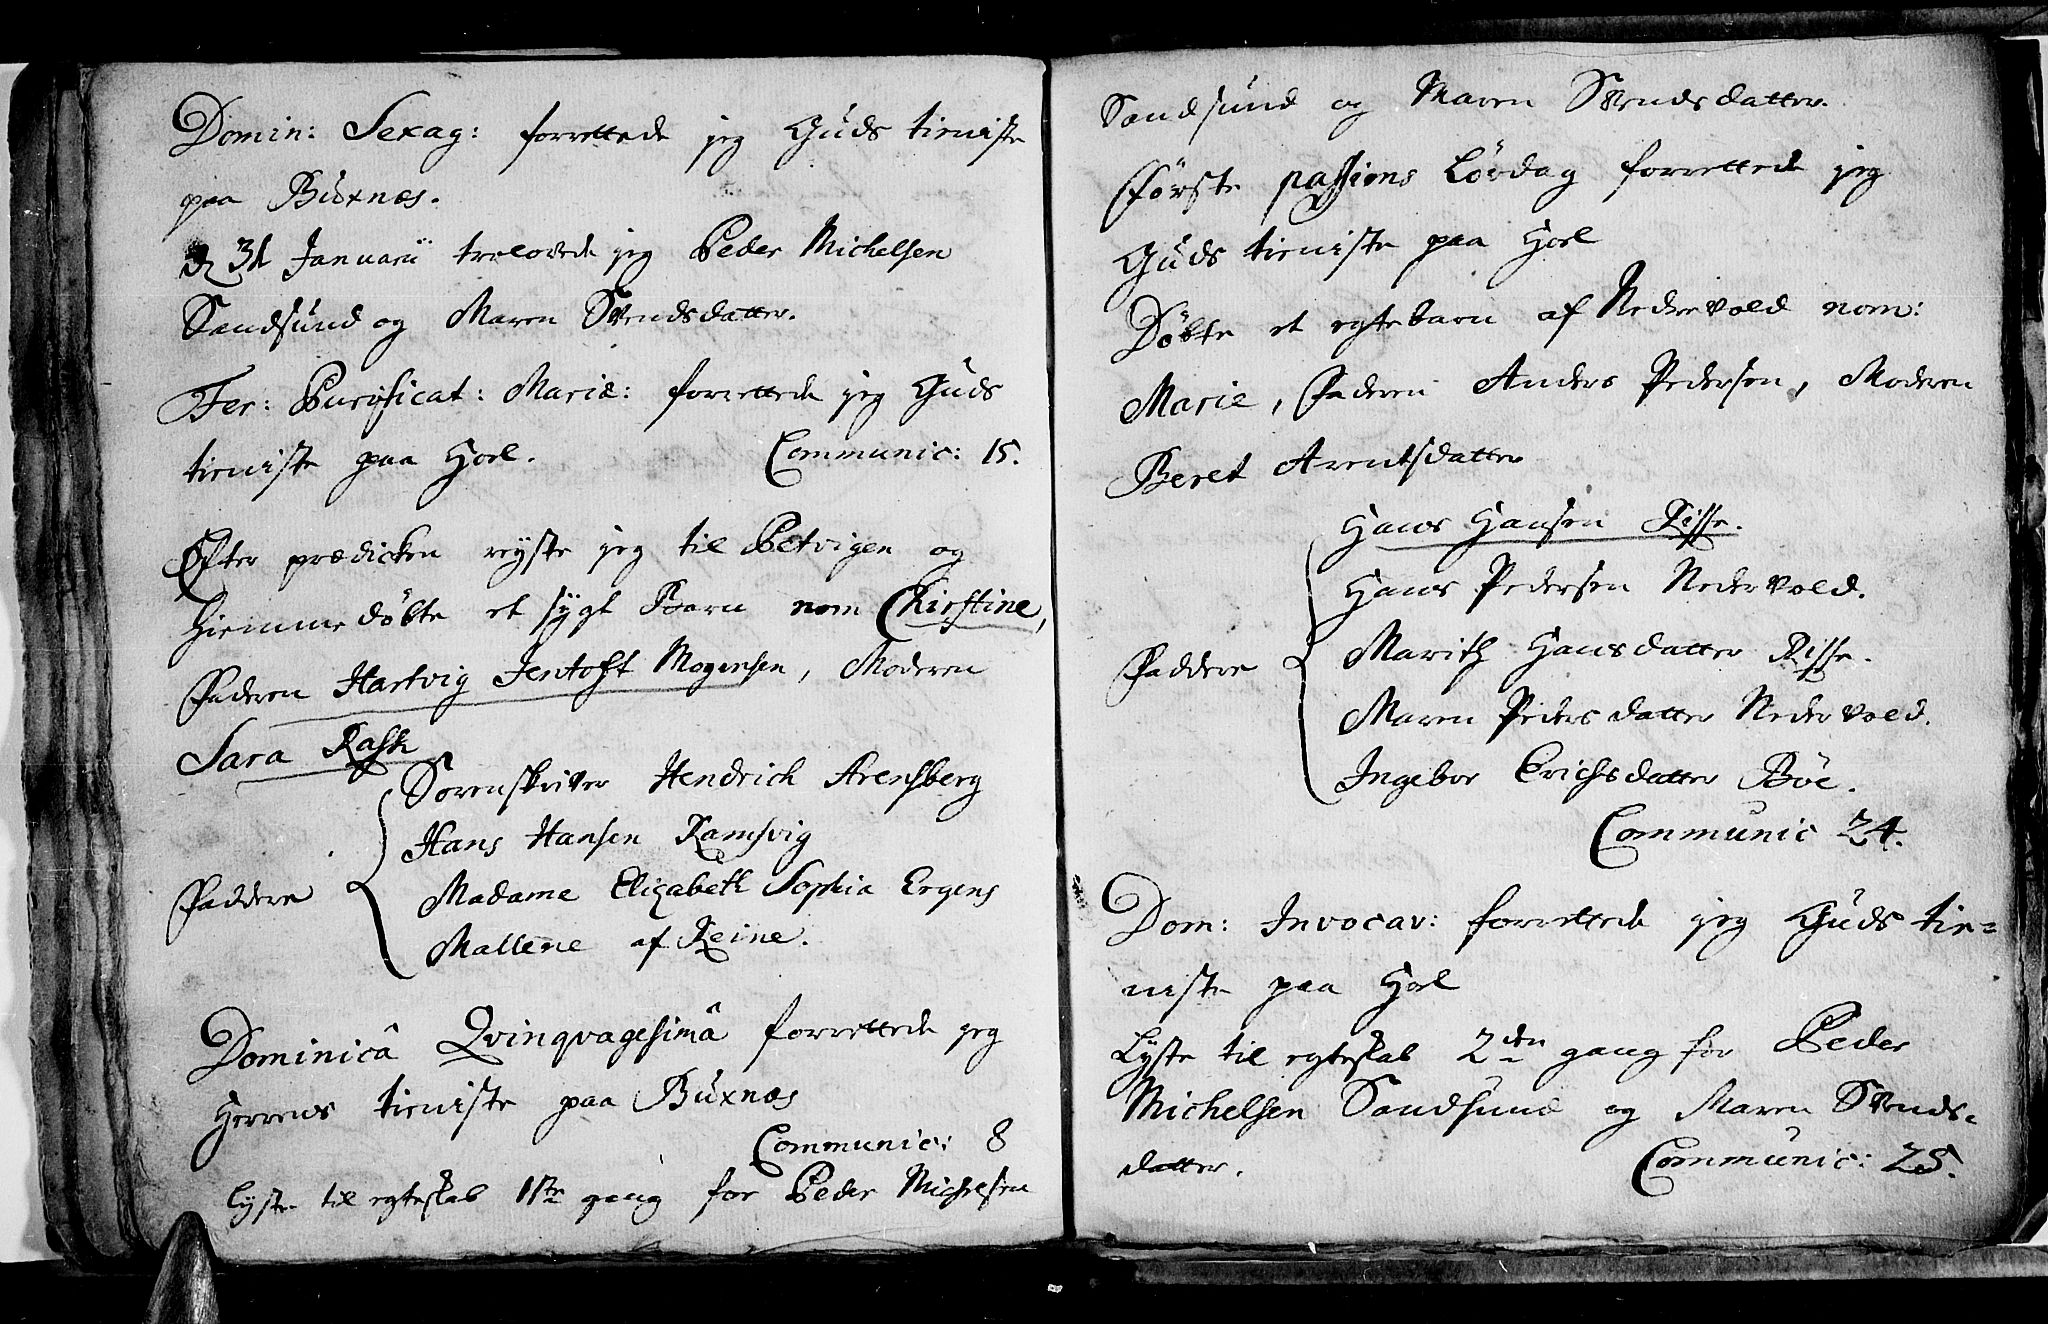 Domin: Sexag: forrettede jeg Guds tieniste
paa Buxnæs.
d 31 Januarii trolovede jeg Peder Michelsen
Sandsund og Maren Svendsdatter.
Fer: Purificat: Mariæ: forrettede jeg Guds
tieniste paa Hoel. Communic: 15.
Efter prædicken reyste jeg til Petvigen og
hiemmedöbte et sygt Barn nom Chirstine,
Faderen Hartvig Jentoft Mogensen, Moderen
Sara Rask
Sorenskriver Hendrich Arensberg
Hans Hansen Ramsvig
Faddere Madame Elizabeth Sophia Ergens
Mallene af Reine.
Dominicâ Qvinqvagesimâ forrettede jeg
Herrens tieniste paa Buxnæs
Communic: 8
Lyste til egteskab 1ste gang for Peder Michelsen
Sandsund og Maren Svendsdatter.
Förste passions Lövdag forrettede jeg
Guds tieniste paa Hoel
Döbte et egtebarn af Nedrevold nom:
Marie, Faderen Anders Pedersen, Moderen
Beret Arentsdatter
Hans Hansen Risse.
Hans Pedersen Nedervold.
Faddere Marith Hansdatter Risse.
Maren Pedersdatter Nedervold.
Ingebor Erichsdatter Böe.
Communic 24.
Dom: Invocav: forrettede jeg Guds tie=
niste paa Hoel
Lyste til egteskab 2den gang for Peder
Michelsen Sandsund og Maren Svends=
datter. Communic: 25.